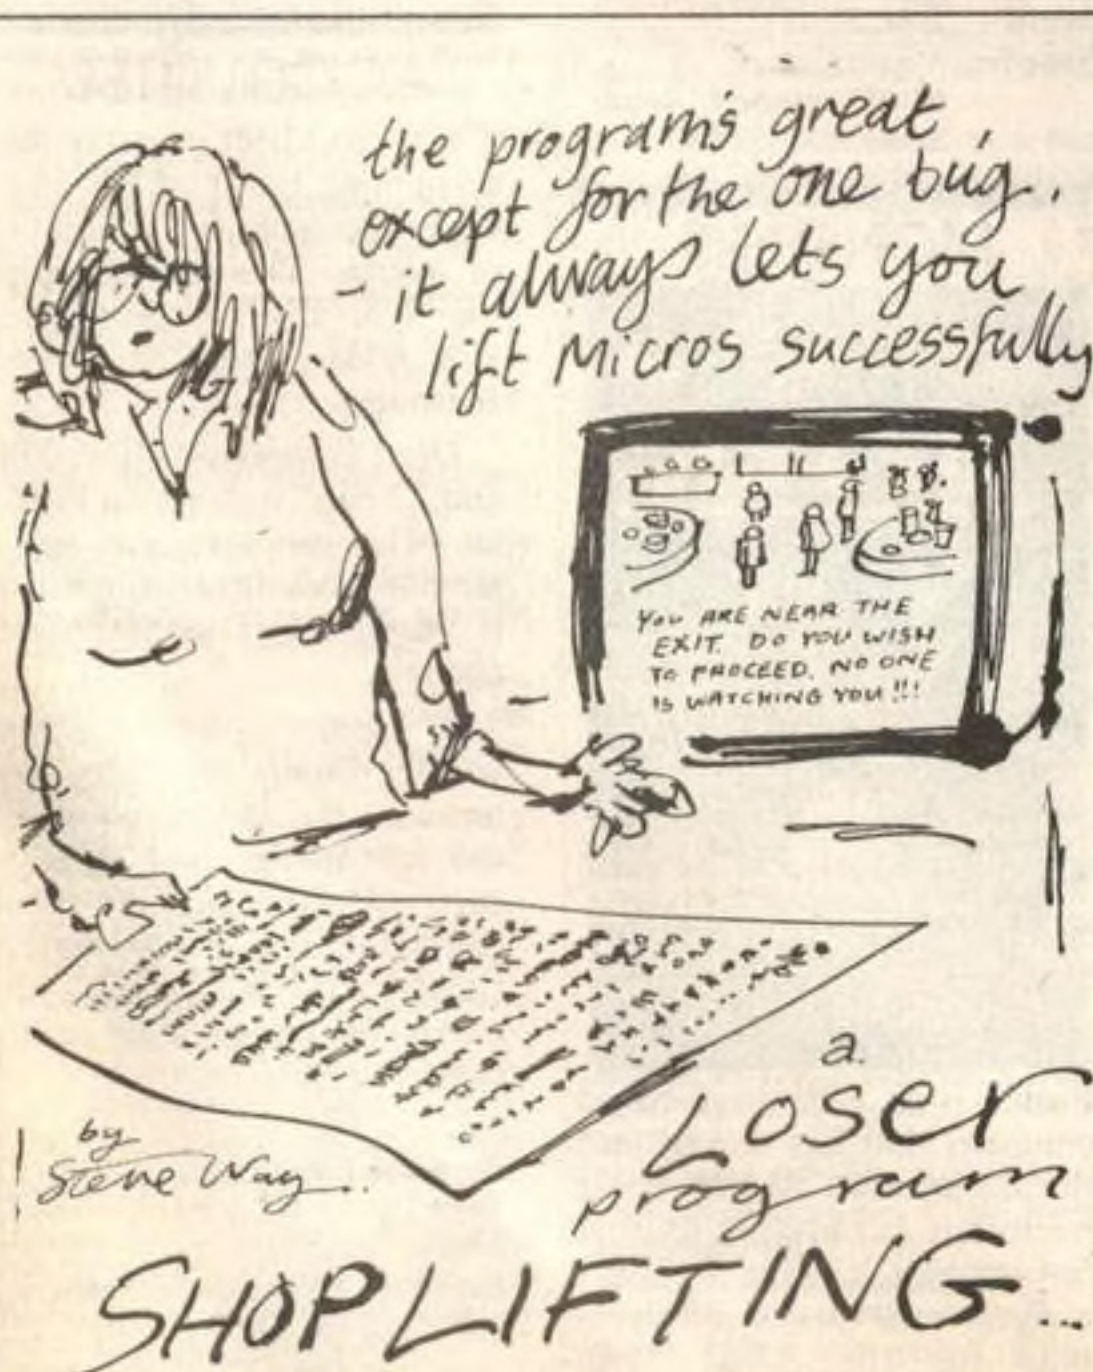 the program's great,
except for the one bug.
- it always lets you
lift Micros successfully
YOU ARE NEAR THE
EXIT. DO YOU WISH
TO PROCEED. NO ONE
IS WATCHING YOU!!!
a.
Loser
program
by
Steve Way..
SHOPLIFTING...